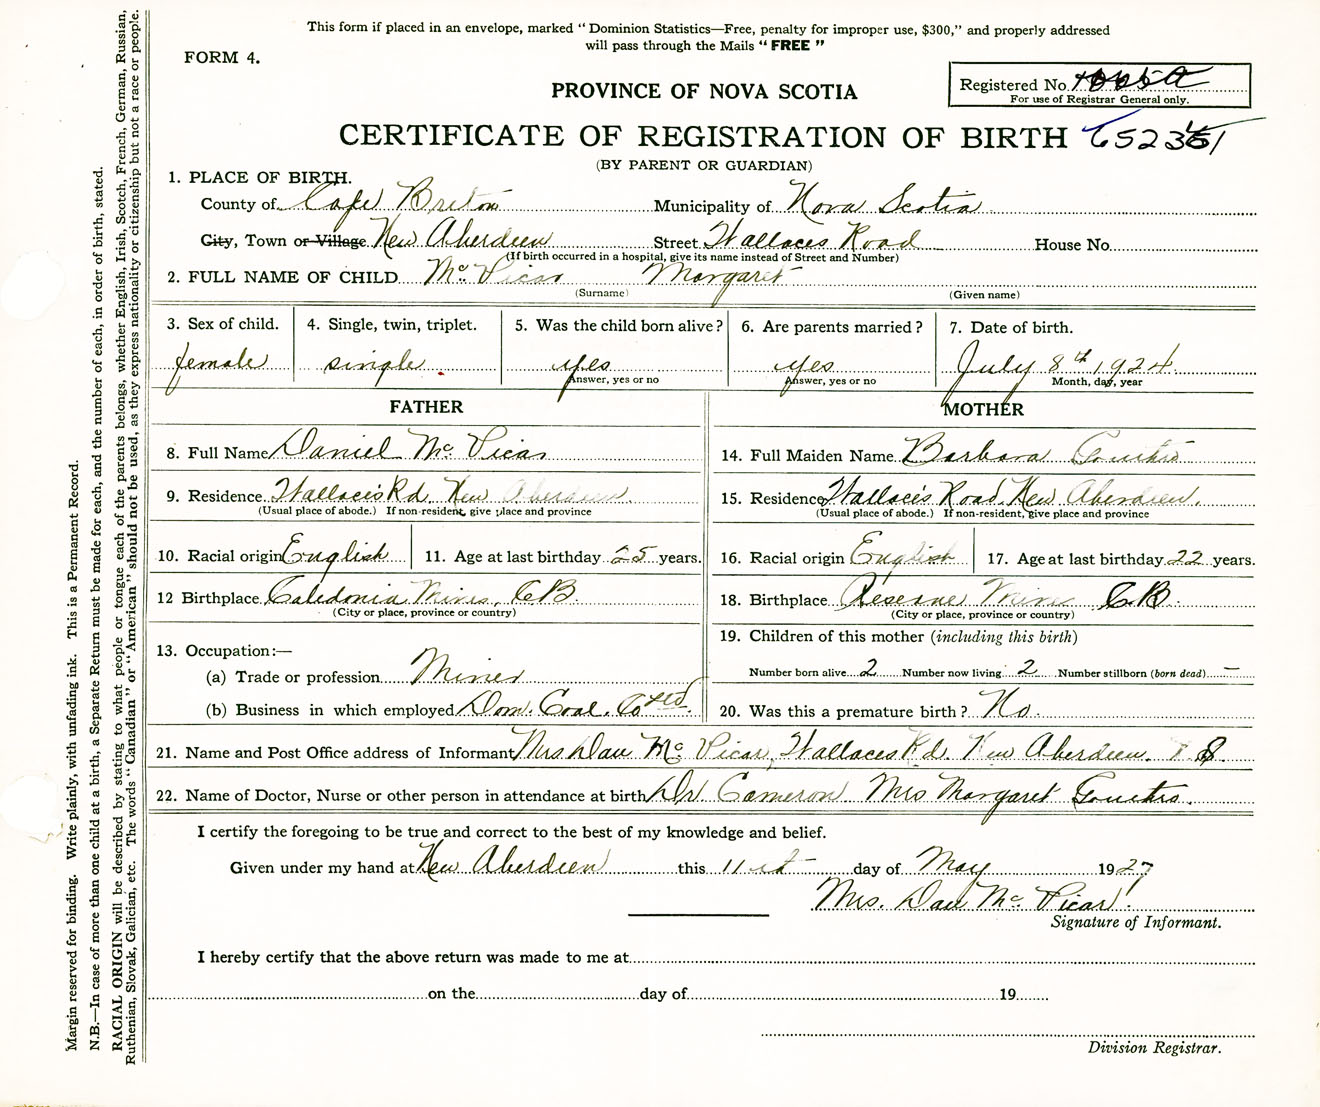 This form if placed in an envelope, marked "Dominion Statistics—Free, penalty for improper use, $300," and properly addressed
will pass through the Mails "FREE"
FORM 4.
Registered No.
For use of Registrar General only.
PROVINCE OF NOVA SCOTIA
CERTIFICATE OF REGISTRATION OF BIRTH
(BY PARENT OR GUARDIAN)
1. PLACE OF BIRTH.
County of Cape Breton Municipality of Nova Scotia
City, Town or Village New Aberdeen Street Wallaces Road House No.
(If birth occurred in a hospital, give its name instead of Street and Number)
2. FULL NAME OF CHILD Mc Vicar Margaret
(Surname) (Given name)
3. Sex of child. 4. Single, twin, triplet. 5. Was the child born alive? 6. Are parents married? 7. Date of birth.
female single yes yes July 8th 1924
Answer, yes or no Answer, yes or no Month, day, year
FATHER MOTHER
8. Full Name Daniel Mc Vicar 14. Full Maiden Name Barbara
9. Residence Wallace's Rd. New Aberdeen. 15. Residence Wallace's Road. New Aberdeen.
(Usual place of abode.) If non-resident, give place and province (Usual place of abode.) If non-resident, give place and province
10. Racial origin English 11. Age at last birthday 25 years. 16. Racial origin English 17. Age at last birthday 22 years.
12 Birthplace Caledonia Mines, CB 18. Birthplace Reserve Mine CB.
(City or place, province or country) (City or place, province or country)
13. Occupation:— 19. Children of this mother (including this birth)
(a) Trade or profession Miner Number born alive 2 Number now living 2 Number stillborn (born dead) —
(b) Business in which employed Dom. Coal. Co Ltd. 20. Was this a premature birth? No.
21. Name and Post Office address of Informant Mrs Dan Mc Vicar, Wallaces Rd. New Aberdeen.
22. Name of Doctor, Nurse or other person in attendance at birth Dr. Cameron. Mrs Margaret
I certify the foregoing to be true and correct to the best of my knowledge and belief.
Given under my hand at New Aberdeen this 11 day of May 1927
Mrs. Dan Mc Vicar.
Signature of Informant.
I hereby certify that the above return was made to me at
on the day of 19
Division Registrar.
Margin reserved for binding. Write plainly, with unfading ink. This is a Permanent Record.
N.B.—In case of more than one child at a birth, a Separate Return must be made for each, and the number of each, in order of birth, stated.
RACIAL ORIGIN will be described by stating to what people or tongue each of the parents belongs, whether English, Irish, Scotch, French, German, Russian,
Ruthenian, Slovak, Galician, etc. The words "Canadian" or "American" should not be used, as they express nationality or citizenship but not a race or people.